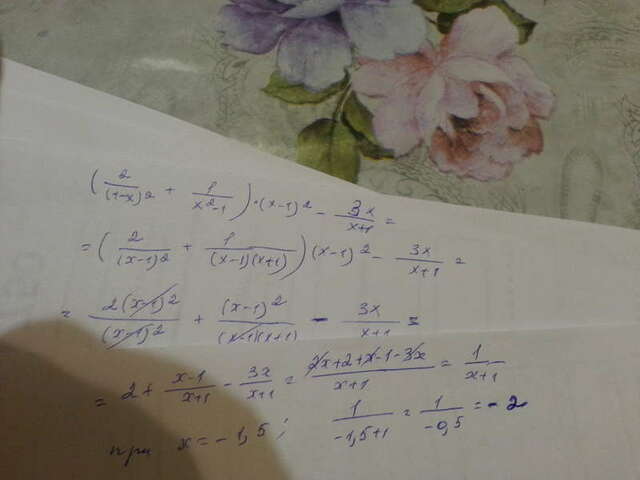 (2/(1-x)² + 1/(x²-1))·(x-1)² - 3x/(x+1) =
= (2/(x-1)² + 1/((x-1)(x+1)))(x-1)² - 3x/(x+1) =
= 2(x-1)²/(x-1)² + (x-1)²/((x-1)(x+1)) - 3x/(x+1) =
= 2 + (x-1)/(x+1) - 3x/(x+1) = (2x+2+x-1-3x)/(x+1) = 1/(x+1)
при x = -1,5; 1/(-1,5+1) = 1/(-0,5) = -2